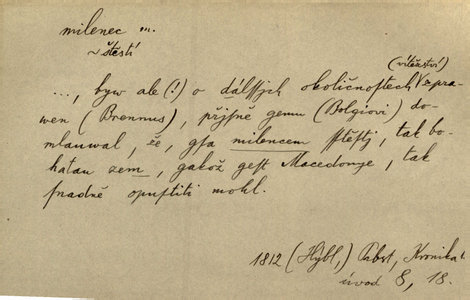 milenec m.
~ štěstí
(vítězství)
..., byw ale (!) o dálssých okoličnostech zpra-
wen (Brennus), přjsně gemu (Bolgiovi) do-
mlauwal, že, gsa milencem sstěstj, tak bo-
hatau zem, gakož gest Macedonye, tak
snadně opustiti mohl.
1812 (Hýbl,) Pabst, Kronika
úvod 8, 18.